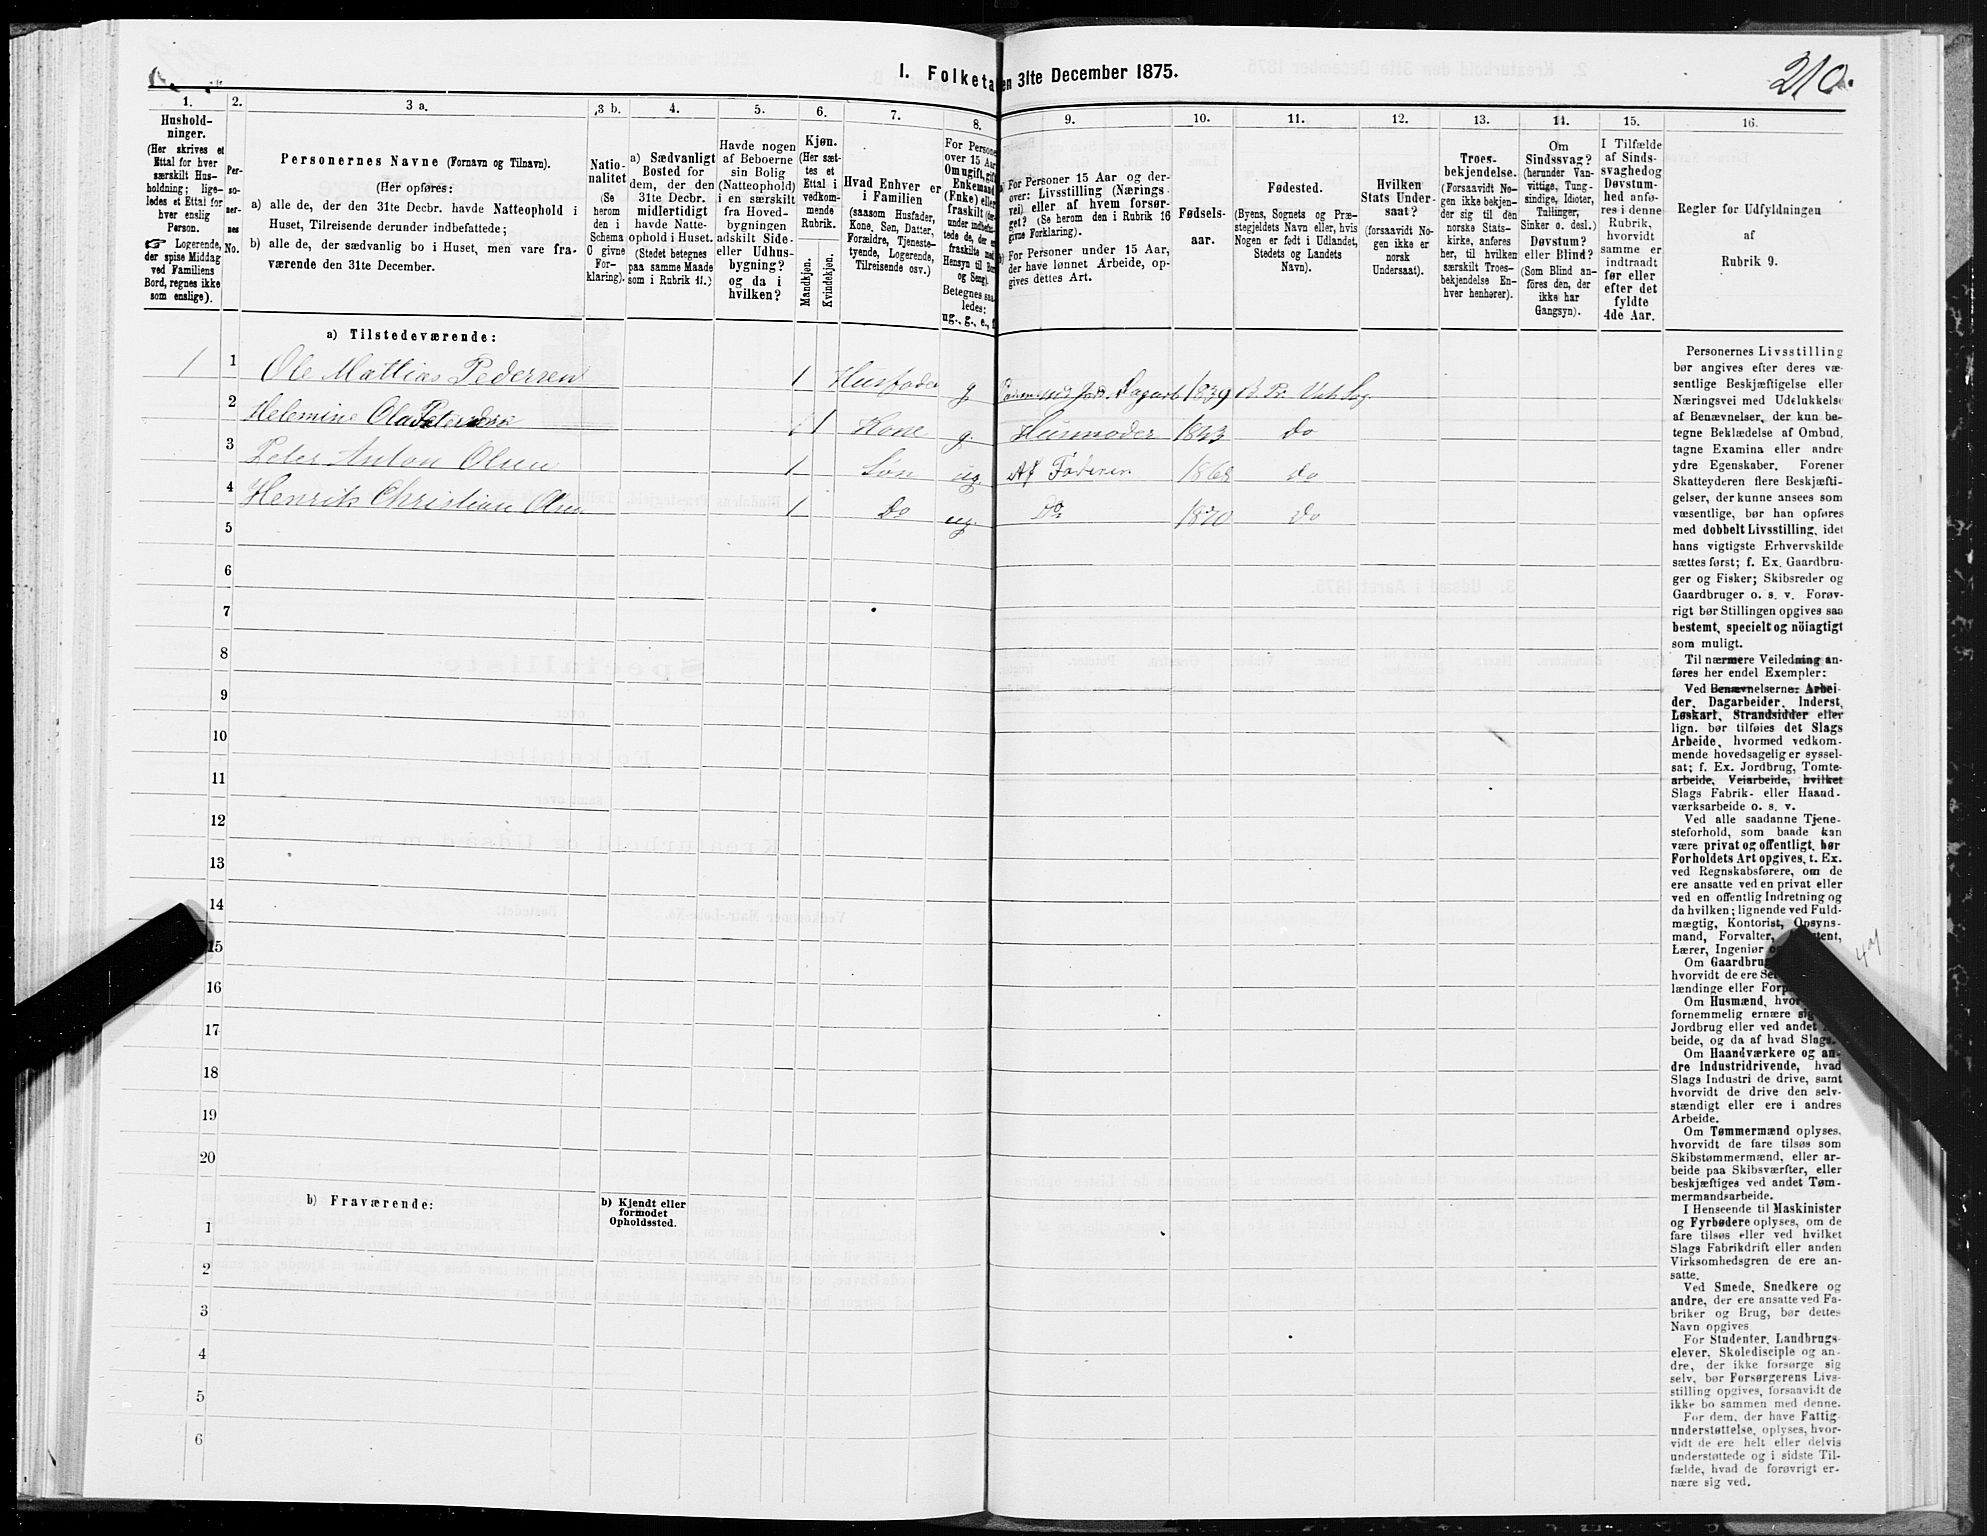 210.
I. Folketa en 31te December 1875.
1. 2. 3 a. 3 b. 4. 5. 6. 7. 8. 9. 10. 11. 12. 13. 14. 15. 16.
Hushold-
ninger.
(Her skrives et
Ettal for hver
særskilt Hus-
holdning; lige-
ledes et Ettal for
hver enslig
Person.
☞ Logerende,
der spise Middag
ved Familiens
Bord, regnes ikke
som enslige).
Per-
so-
ner-
nes
No.
Personernes Navne (Fornavn og Tilnavn).
(Her opføres:
a) alle de, der den 31te Decbr. havde Natteophold i
Huset, Tilreisende derunder indbefattede;
b) alle de, der sædvanlig bo i Huset, men vare fra-
værende den 31te December.
Natio-
nalitet
(Se
herom
den i
Schema
O givne
For-
klaring).
a) Sædvanligt
Bosted for
dem, der den
31te Decbr.
midlertidigt
havde Natte-
ophold i Huset.
(Stedet betegnes
paa samme Maade
som i Rubrik 11.)
Havde nogen
af Beboerne
sin Bolig
(Natteophold)
i en særskilt
fra Hoved-
bygningen
adskilt Side-
eller Udhus-
bygning?
og da i
hvilken?
Kjøn.
(Her sæt-
tes et
Ettal i
vedkom-
mende
Rubrik.
Mandkjøn.
Kvindekjøn.
Hvad Enhver er
i Familien
(saasom Husfader,
Kone, Søn, Datter,
Forældre, Tjeneste-
tyende, Logerende,
Tilreisende osv.)
For Persone
over 15 Aar
Om ugift, gift
Enkemand
(Enke) eller
fraskilt (der-
under indbefat-
tede de, der er
fraskilte med
Hensyn til Bord
og Seng).
Betegnes saa-
ledes:
ug., g., e., f.
a) For Personer 15 Aar og der-
over: Livsstilling (Nærings-
vei) eller af hvem forsør-
get? (Se herom den i Rubrik 16
givne Forklaring).
b) For Personer under 15 Aar,
der have lønnet Arbeide, op-
gives dettes Art.
Fødsels-
aar.
Fødested.
(Byens, Sognets og Præ-
stegjeldets Navn eller, hvis
Nogen er født i Udlandet,
Stedets og Landets
Navn).
Hvilken
Stats Under-
saat?
(forsaavidt No-
gen ikke er
norsk
Undersaat).
Troes-
bekjendelse.
(Forsaavidt No-
gen ikke bekjen-
der sig til den
norske Stats-
kirke, anføres
her, til hvilken
særskilt Troes-
bekjendelse En-
hver henhører).
Om
Sindssvag?
(herunder Van-
vittige, Tung-
sindige, Idioter,
Tullinger,
Sinker o. desl.)
Døvstum?
eller Blind?
(Som Blind an-
føres den, der
ikke har
Gangsyn).
I Tilfælde
af Sinds-
svaghed og
Døvstum-
hed anfø-
res i denne
Rubrik,
hvorvidt
samme er
indtraadt
før eller
efter det
fyldte
4de Aar.
Regler for Udfyldningen
af
Rubrik 9.
a) Tilstedeværende:
1 1 Ole Mattias Pedersen 1 Husfader g. Dagarb 1839
2 Helemine Ola 1 Kone g. Husmoder 1843 Do
3 Peter Anton Olsen 1 Søn ug. Af Faderen 1868 Do
4 Henrik Christian Olsen 1 Do ug. Do 1870 Do
5
6
7
8
9
10
11
12
13
14
15
16
17
18
19
20
b) Fraværende:
b) Kjendt eller
formodet
Opholdssted.
1
2
3
4
5
6
Personernes Livsstilling
bør angives efter deres væ-
sentlige Beskjæftigelse eller
Næringsvei med Udelukkelse
af Benævnelser, der kun be-
tegne Beklædelse af Ombud,
tagne Examina eller andre
ydre Egenskaber. Forener
Skatteyderen flere Beskjæfti-
gelser, der kunne ansees som
væsentlige, bør han opføres
med dobbelt Livsstilling, idet
hans vigtigste Erhvervskilde
sættes først; f. Ex. Gaardbru-
ger og Fisker; Skibsreder og
Gaardbruger o. s. v. Forøv-
rigt bør Stillingen opgives saa
bestemt, specielt og nöiagtigt
som muligt.
Til nærmere Veiledning an-
føres her endel Exempler:
Ved Benævnelserne: Arbei-
der, Dagarbeider, Inderst,
Løskarl, Strandsidder eller
lign. bør tilføies det Slags
Arbeide, hvormed vedkom-
mende hovedsagelig er syssel-
sat; f. Ex. Jordbrug, Tomte-
arbeide, Veiarbeide, hvilket
Slags Fabrik- eller Haand-
værksarbeide o. s. v.
Ved alle saadanne Tjene-
steforhold, som baade kan
være privat og offentligt, bør
Forholdets Art opgives, t. Ex.
ved Regnskabsførere, om de
ere ansatte ved en privat eller
ved en offentlig Indretning og
da hvilken; lignende ved Fuld-
mægtig, Kontorist, Opsyns-
mand, Forvalter,
Lærer, Ingeniør
Om Gaardbrug
hvorvidt de ere Sel
lændinge eller Forp
Om Husmænd, hvor
fornemmelig ernære sig
Jordbrug eller ved andet
beide, og da af hvad Slags.
Om Haandværkere og an-
dre Industridrivende, hvad
Slags Industri de drive, samt
hvorvidt de drive den selv-
stændigt eller ere i andres
Arbeide.
Om Tømmermænd oplyses,
hvorvidt de fare tilsøs som
Skibstømmermænd, eller ar-
beide paa Skibsværfter, eller
beskjæftiges ved andet Tøm-
mermandsarbeide.
I Henseende til Maskinister
og Fyrbødere oplyses, om de
fare tilsøs eller ved hvilket
Slags Fabrikdrift eller anden
Virksomhedsgren de ere an-
satte.
Ved Smede, Snedkere og
andre, der ere ansatte ved Fa-
briker og Brug, bør dettes
Navn opgives.
For Studenter, Landbrugs-
elever, Skoledisciple og an-
dre, der ikke forsørge sig
selv, bør Forsørgerens Livs-
stilling opgives, forsaavidt de
ikke bo sammen med denne.
For dem, der have Fattig-
understøttelse, oplyses, hvor-
vidt de ere helt eller delvis
understøttede og i sidste Til-
fælde, hvad de forøvrigt er-
nære sig ved.